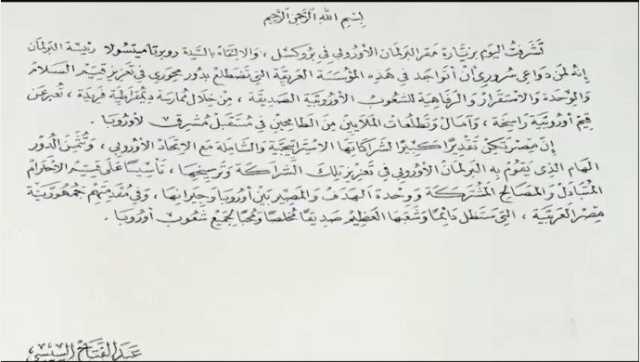 بِسْمِ اللَّهِ الرَّحْمَنِ الرَّحِيمِ
تَشَرَّفْتُ اليوم بزيارة مقر البرلمان الأوروبي في بروكسل، والالتقاء بالسيدة روبرتا ميتسولا رئيسة البرلمان
إنه لمن دواعي سروري أن أتواجد في هذه المؤسسة العريقة التي تضطلع بدور محوري في تعزيز قيم السلام
والوحدة والاستقرار والرفاهية للشعوب الأوروبية الصديقة، من خلال ممارسة ديمقراطية فريدة، تعبر عن
قيم أوروبية راسخة، وآمال وتطلعات الملايين من الطامحين في مستقبل مشرق لأوروبا.
إن مصر تكن تقديرًا كبيرًا لشراكاتها الاستراتيجية والشاملة مع الاتحاد الأوروبي، وتثمن الدور
الهام الذي يقوم به البرلمان الأوروبي في تعزيز تلك الشراكة وترسيخها، تأسيسًا على قيم الاحترام
المتبادل والمصالح المشتركة ووحدة الهدف والمصير بين أوروبا وجيرانها، وفي مقدمتهم جمهورية
مصر العربية، التي ستظل دائمًا وشعبها العظيم صديقًا مخلصًا ومحبًا لجميع شعوب أوروبا.
عبد الفتاح السيسي